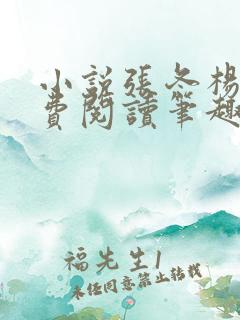 小說張冬楊
費閱讀筆趣
福先生1
未任同意禁止轉載